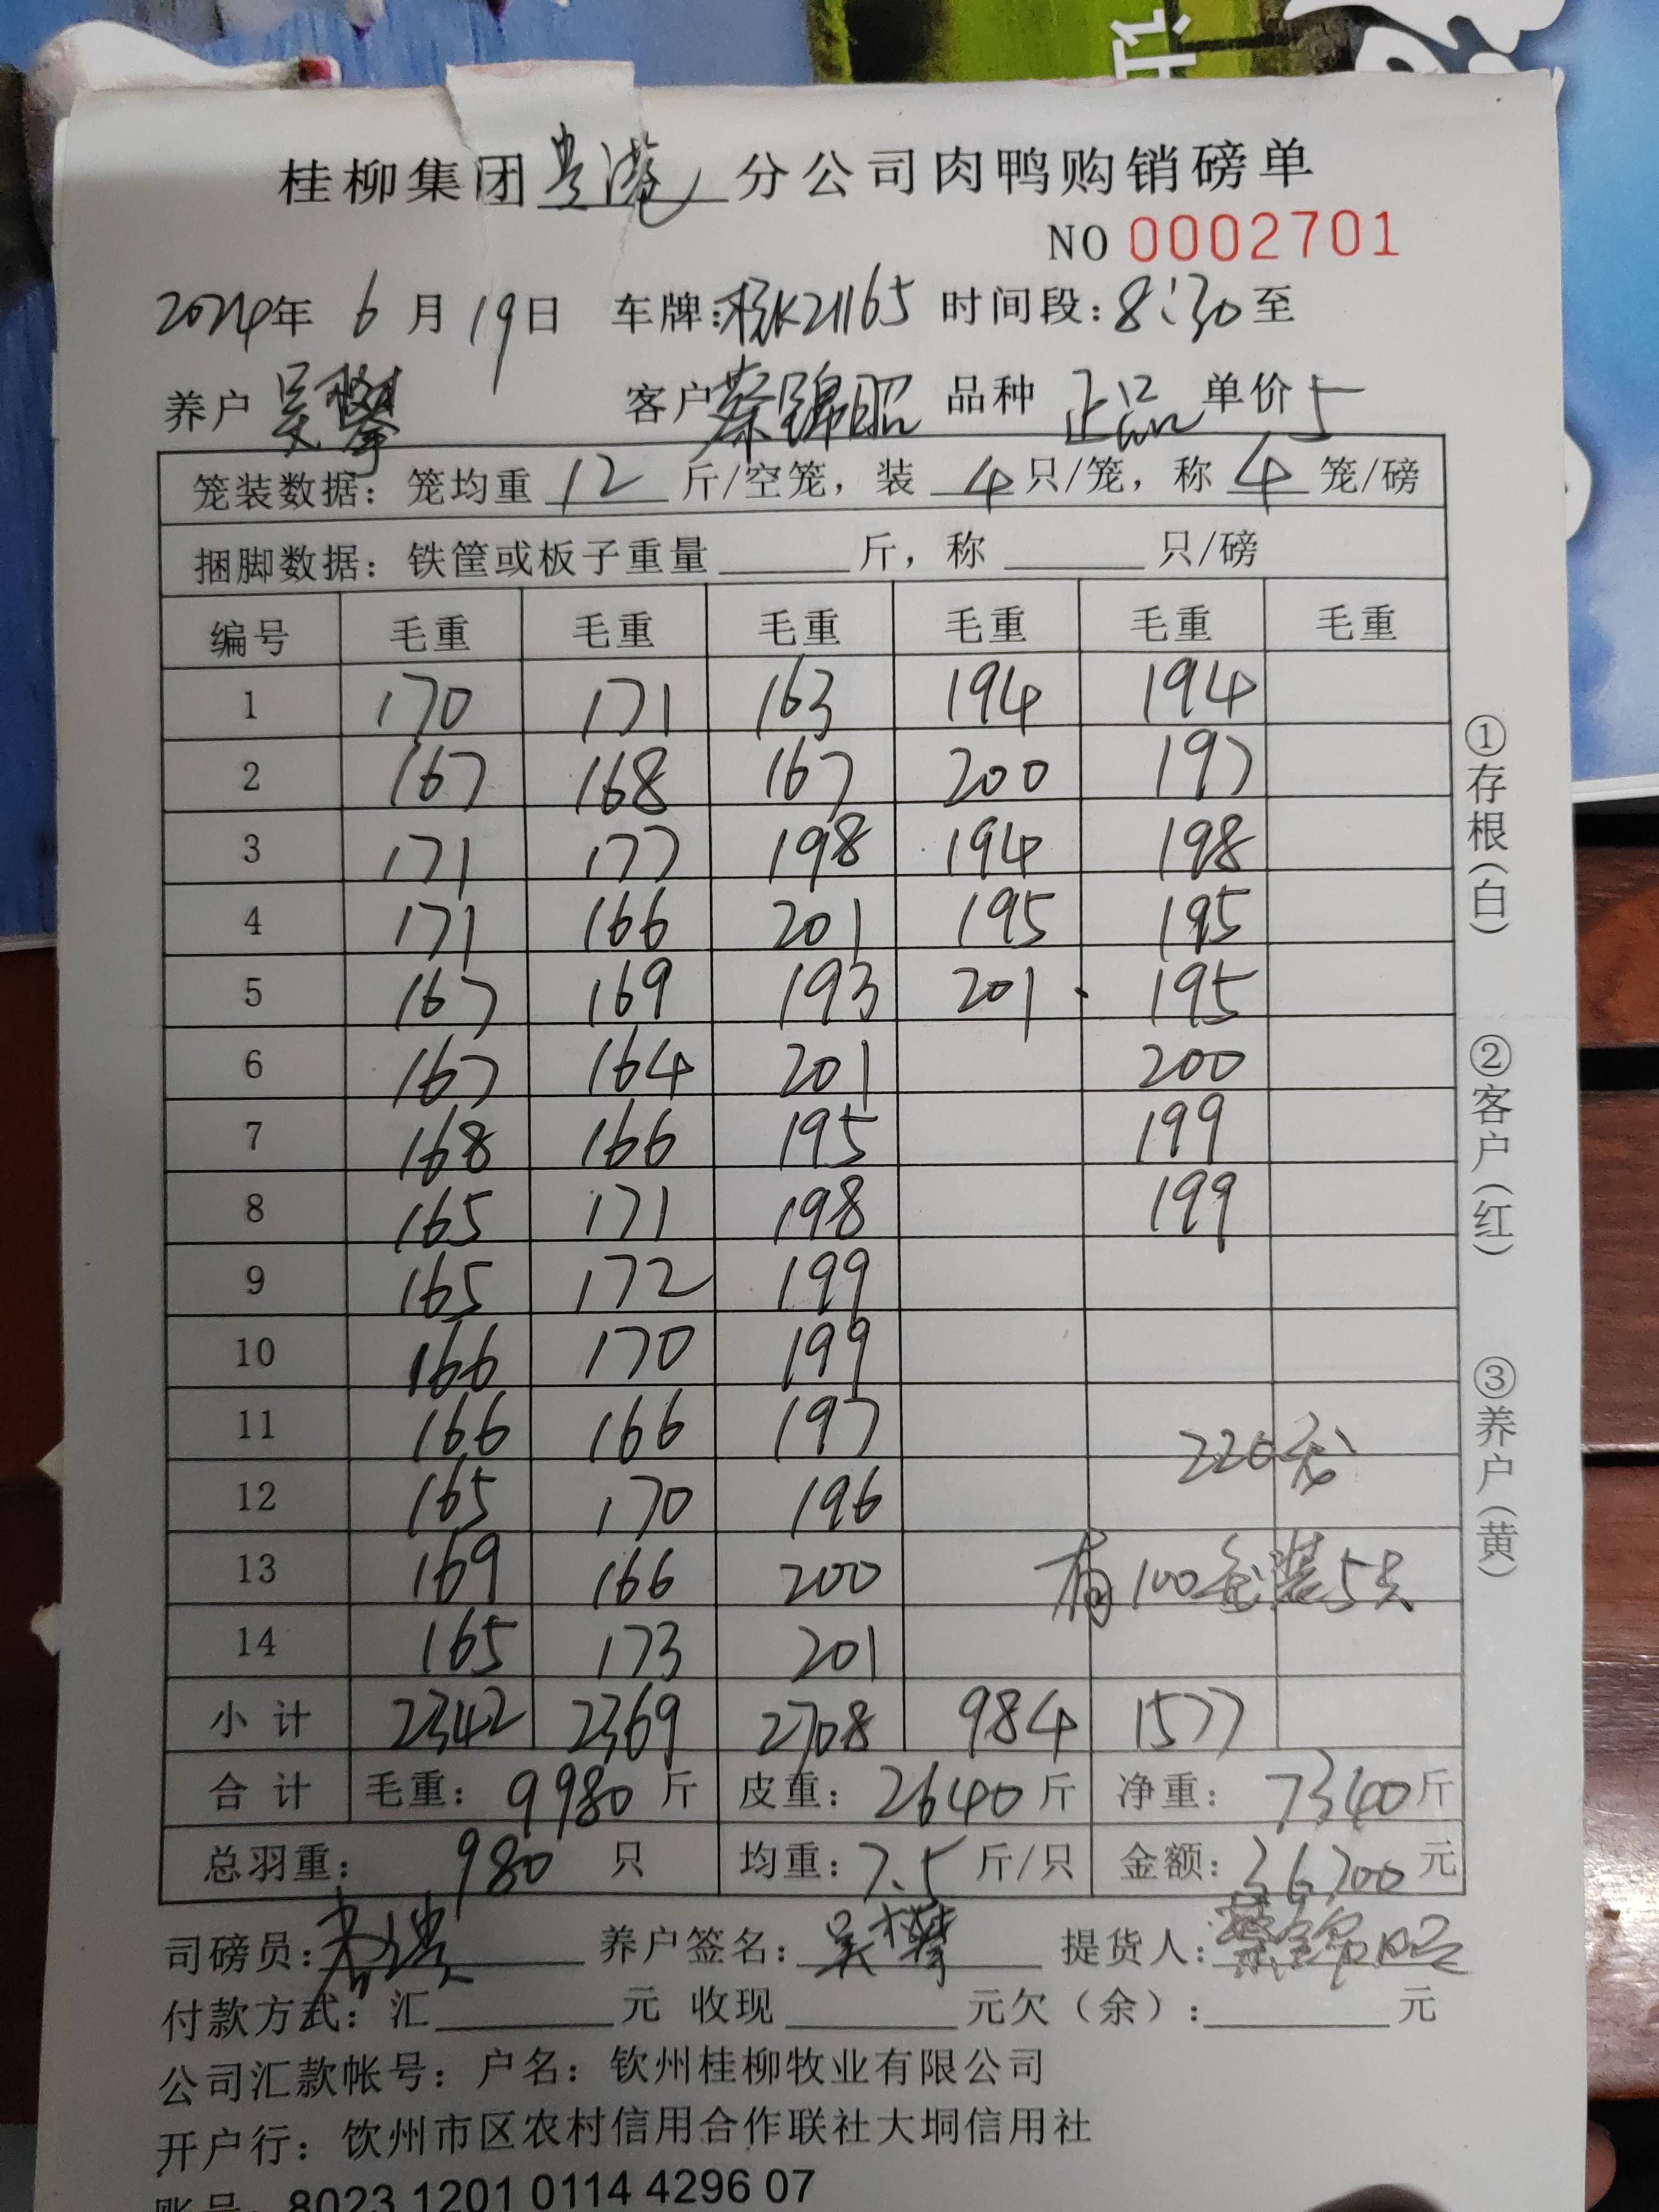 桂柳集团贵港分公司肉鸭购销磅单
NO 0002701
2024年 6月 19日 车牌:桂K21165 时间段:8:30至
养户 吴攀 客户 蔡锦昭 品种 正品 单价 5
笼装数据: 笼均重 12 斤/空笼, 装 4 只/笼, 称 4 笼/磅
捆脚数据: 铁筐或板子重量 斤, 称 只/磅
编号 毛重 毛重 毛重 毛重 毛重 毛重
1 170 171 163 194 194
2 167 168 167 200 197
3 171 177 198 194 198
4 171 166 201 195 195
5 167 169 193 201 195
6 167 164 201 200
7 168 166 195 199
8 165 171 198 199
9 165 172 199
10 166 170 199
11 166 166 197
220仓
12 165 170 196
13 169 166 200 有100仓装5只
14 165 173 201
小计 2342 2369 2708 984 1577
合计 毛重: 9980 斤 皮重: 2640 斤 净重: 7340 斤
总羽重: 980 只 均重: 7.5 斤/只 金额: 36700 元
司磅员: 养户签名: 吴攀 提货人: 蔡锦昭
付款方式: 汇 元 收现 元欠(余): 元
公司汇款帐号: 户名: 钦州桂柳牧业有限公司
开户行: 钦州市区农村信用合作联社大垌信用社
账号: 8023 1201 0114 4296 07
①存根(白)
②客户(红)
③养户(黄)